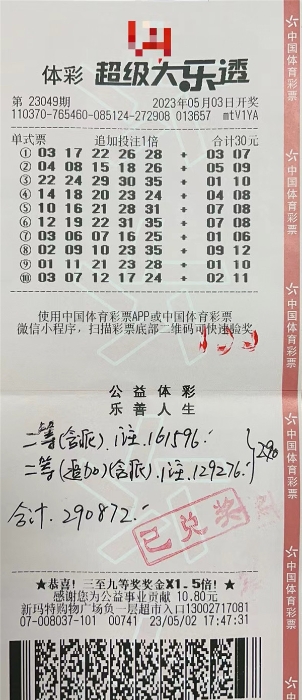 体彩 超级大乐透
第 23049期 2023年05月03日开奖
110370-765460-085124-272908 013657 mtV1YA
单式票 追加投注1倍 合计30元
① 03 17 22 26 28 + 03 07
② 04 08 15 18 26 + 05 09
③ 22 24 29 30 35 + 01 10
④ 14 18 20 23 24 + 04 08
⑤ 10 16 21 28 31 + 07 08
⑥ 12 19 22 31 35 + 07 08
⑦ 03 06 07 16 25 + 01 06
⑧ 02 09 10 23 35 + 09 12
⑨ 01 11 21 23 28 + 01 10
⑩ 03 07 12 17 24 + 02 11
使用中国体育彩票APP或中国体育彩票
微信小程序，扫描彩票底部二维码可快速验奖
公益体彩
乐善人生
二等(含派).1注.161596.
二等(追加)(含派).1注.129276.
合计.290872.
已兑奖
★恭喜! 三至九等奖奖金X1.5倍! ★
感谢您为公益事业贡献 10.80元
新玛特购物广场负一层超市入口13002717081
07-008037-101 00741 23/05/02 17:47:31
中国体育彩票
中国体育彩票
中国体育彩票
中国体育彩票
中国体育彩票